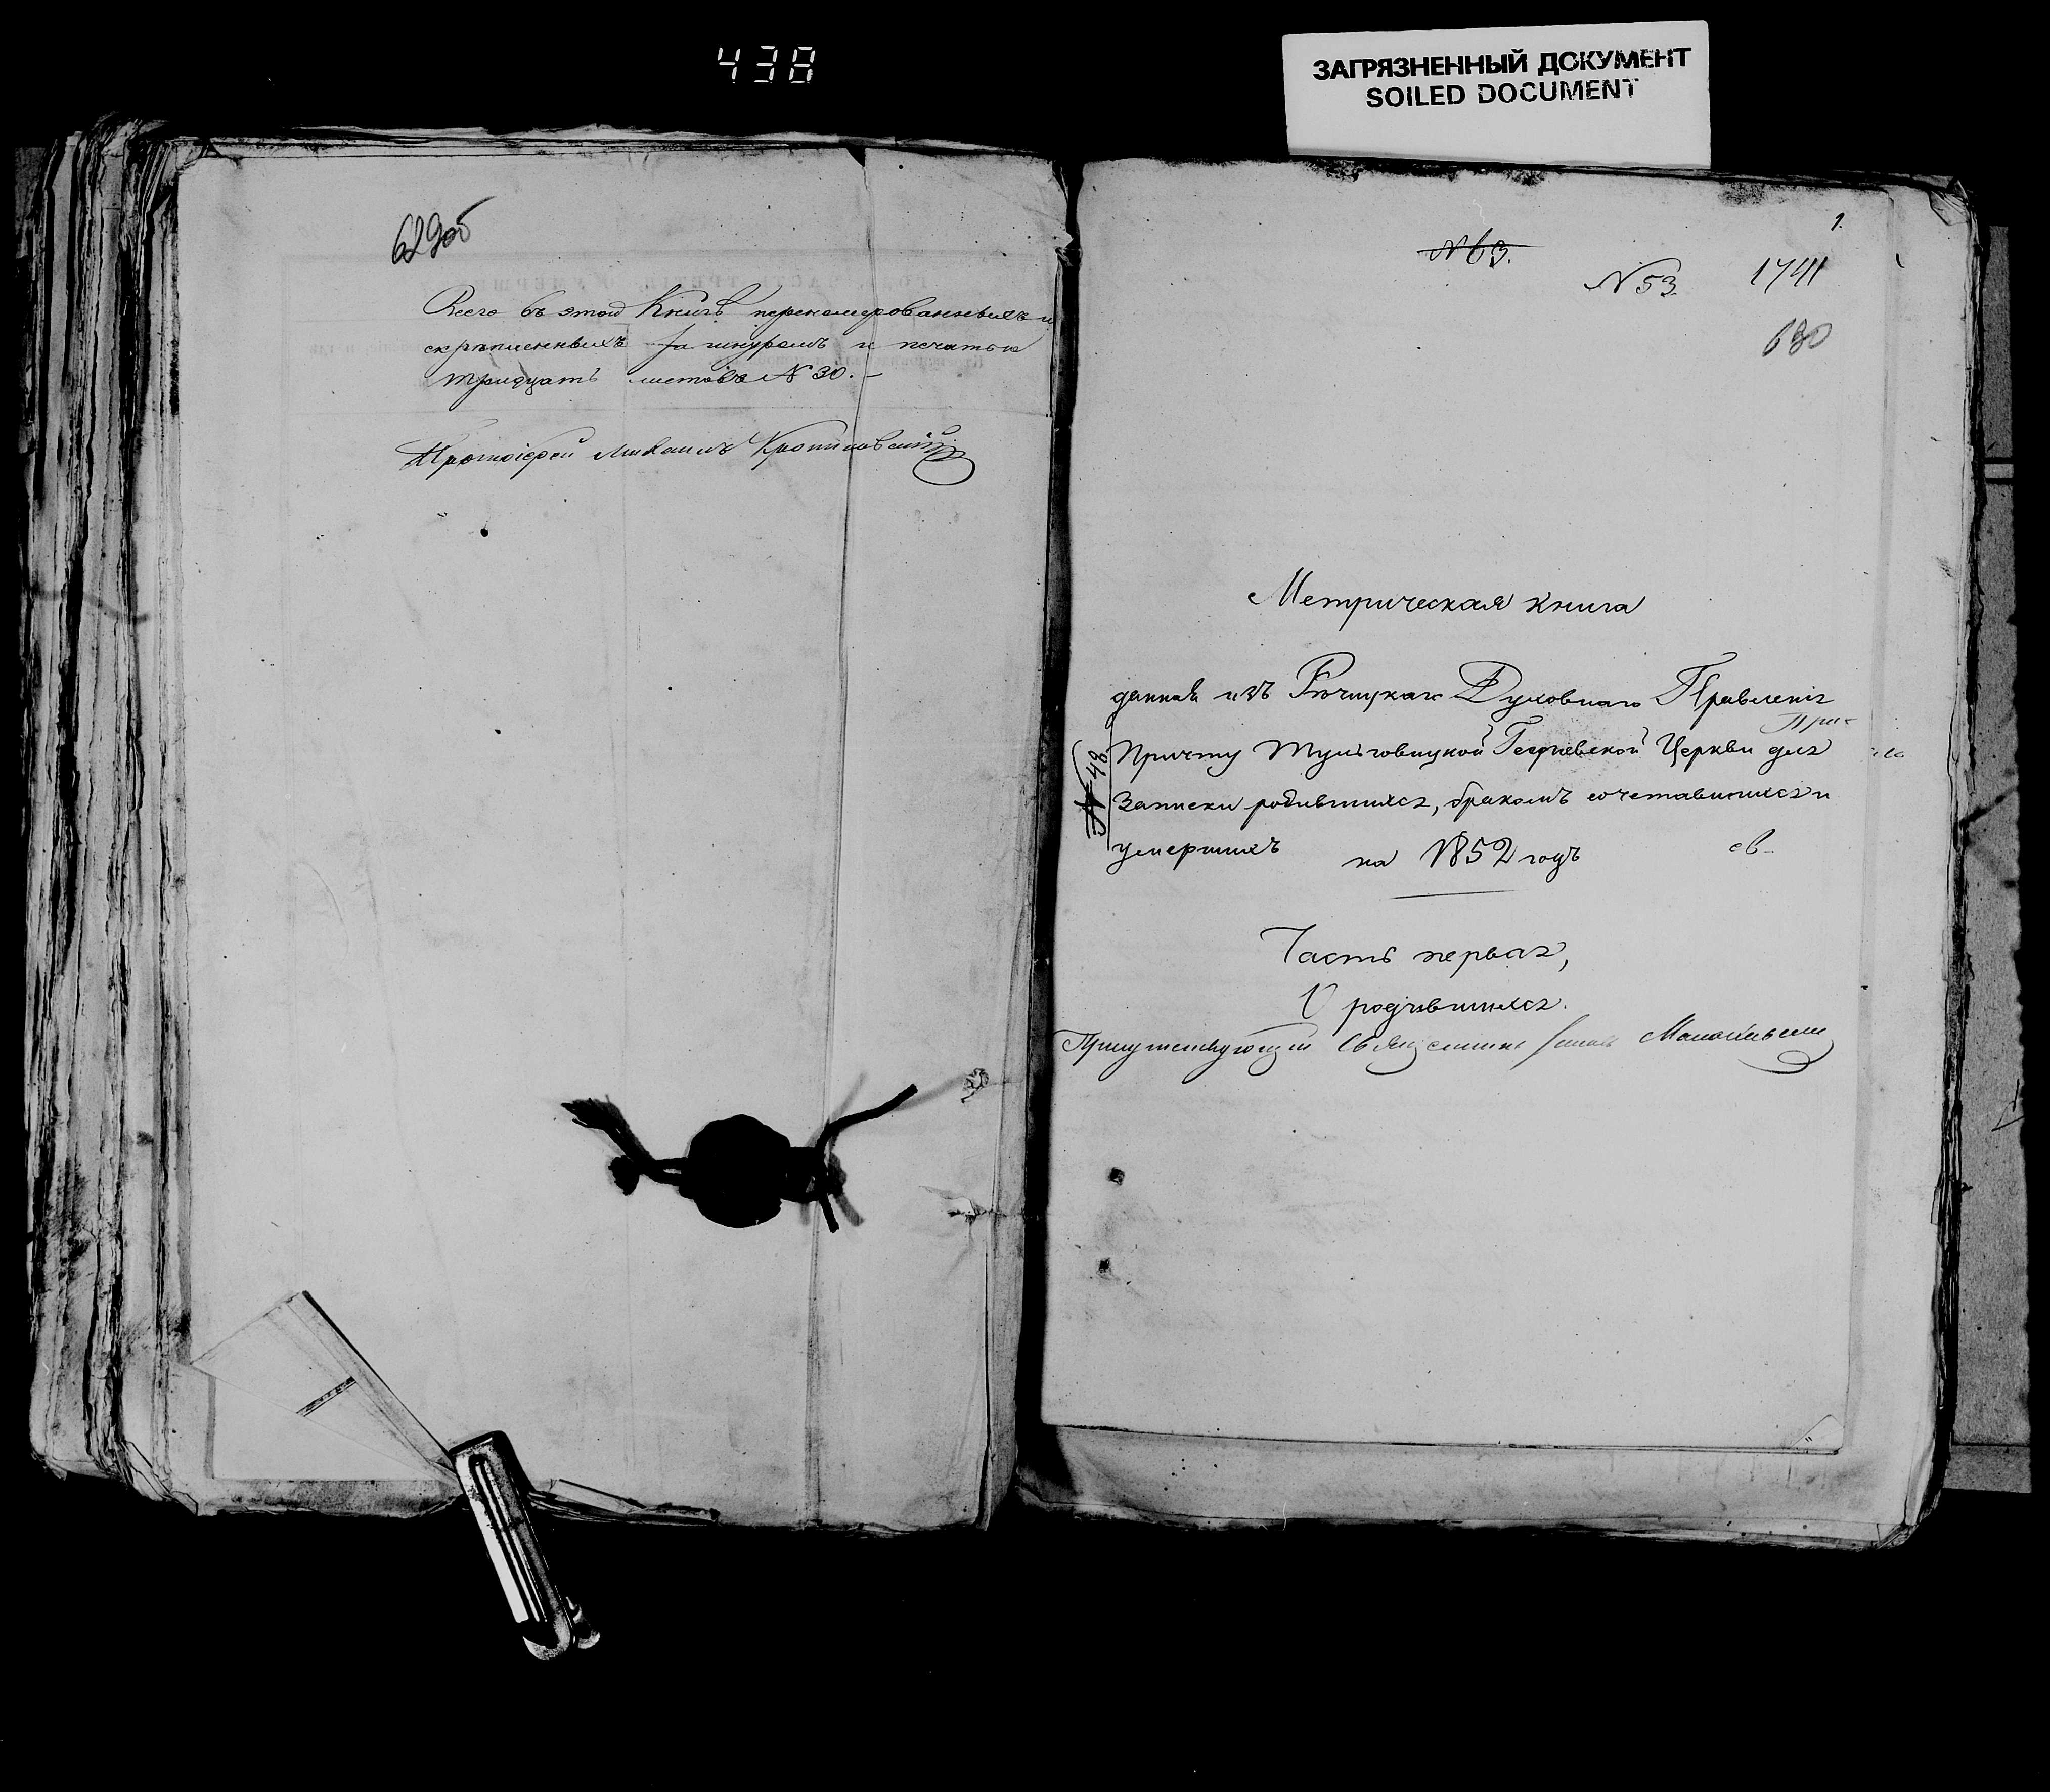 438
ЗАГРЯЗНЕННЫЙ ДОКУМЕНТ
SOILED DOCUMENT
629об
Всего въ этой Книгѣ перенумерованныхъ и
скрѣпленныхъ за шнуромъ и печатью
тридцать листовъ № 30. –
Протоіерей Михаилъ
1.
№ 63.
№ 53.
1741
630
Метрическая книга
данная изъ Рѣчицкаго Духовнаго Правленія
Причту Тульговицкой Георгіевской Церкви для
№ 48
Записки родившихся, бракомъ сочетавшихся и
умершихъ на 1852 годъ
св
Часть первая,
О родившихся.
Присутствующій Священникъ